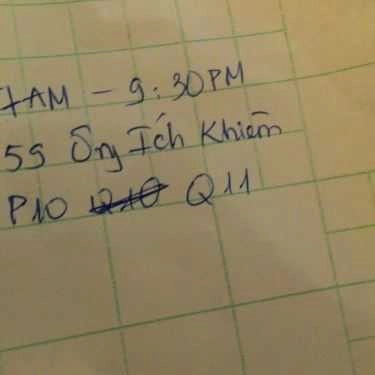 7AM - 9:30PM
59 Ông Ích Khiêm
P10 Q11